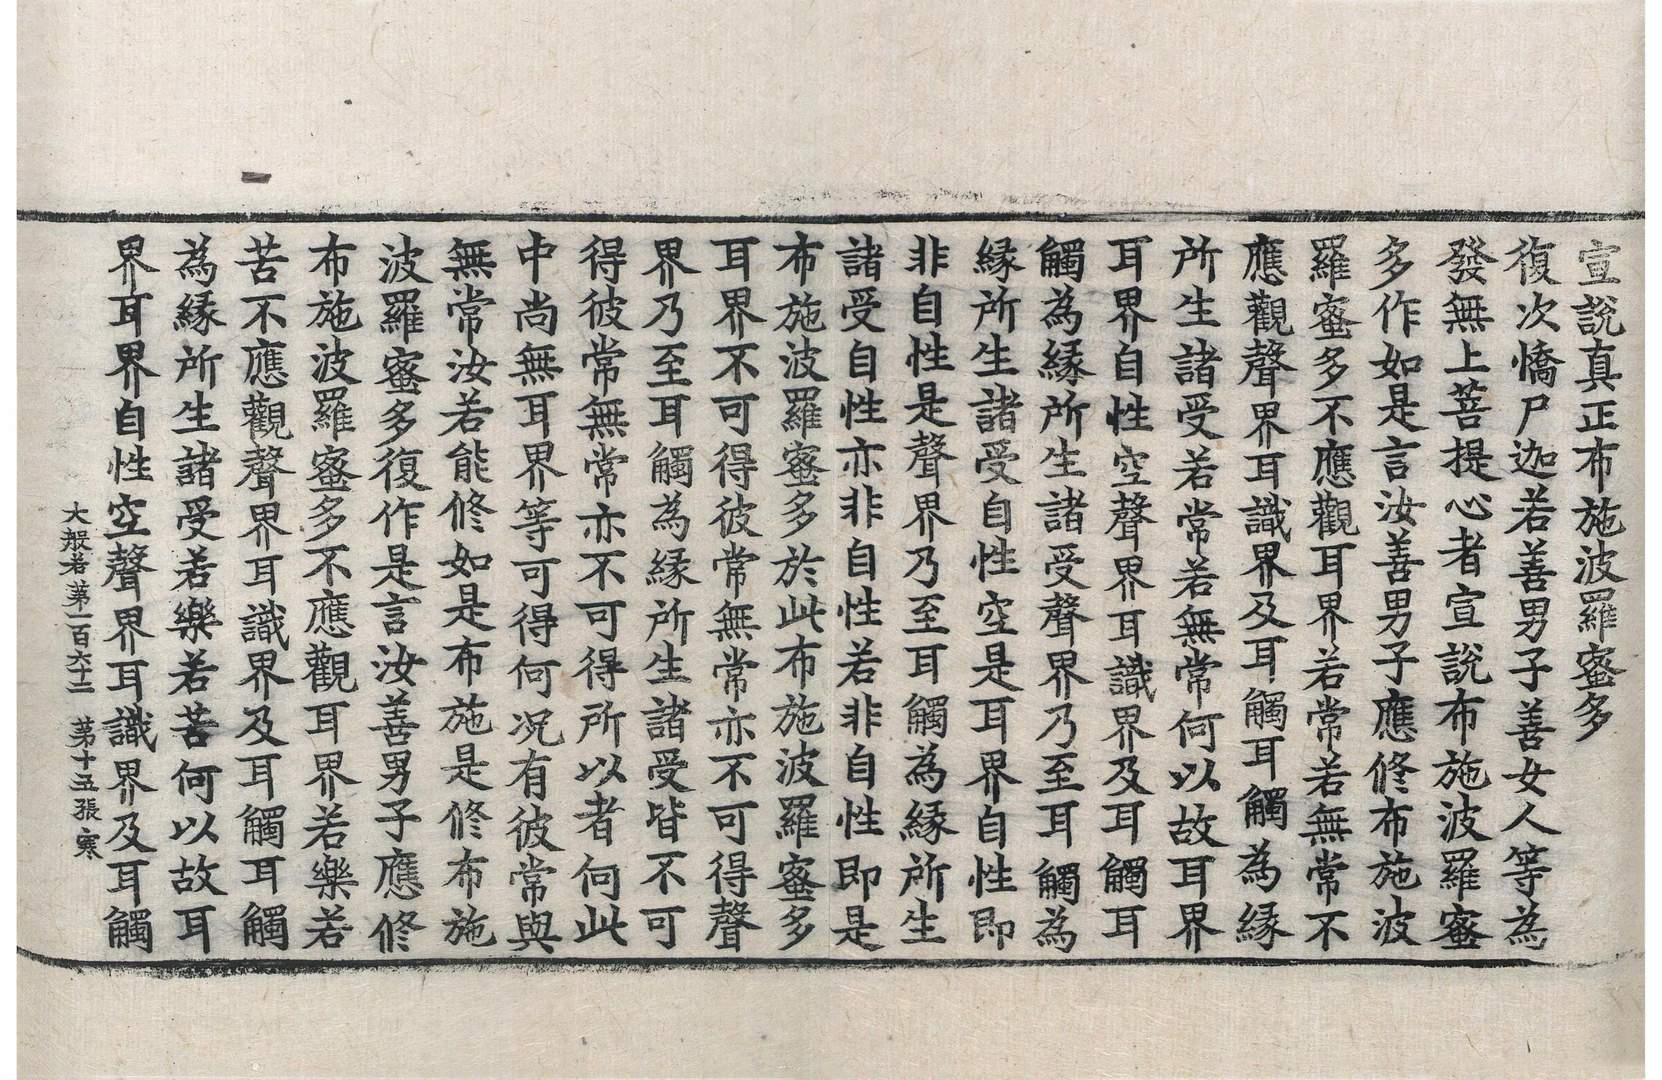 宣說真正布施波羅蜜多
復次憍尸迦若善男子善女人等為
發無上菩提心者宣說布施波羅蜜
多作如是言汝善男子應修布施波
羅蜜多不應觀耳界若常若無常不
應觀聲界耳識界及耳觸耳觸為緣
所生諸受若常若無常何以故耳界
耳界自性空聲界耳識界及耳觸耳
觸為緣所生諸受聲界乃至耳觸為
緣所生諸受自性空是耳界自性即
非自性是聲界乃至耳觸為緣所生
諸受自性亦非自性若非自性即是
布施波羅蜜多於此布施波羅蜜多
耳界不可得彼常無常亦不可得聲
界乃至耳觸為緣所生諸受皆不可
得彼常無常亦不可得所以者何此
中尚無耳界等可得何況有彼常與
無常汝若能修如是布施是修布施
波羅蜜多復作是言汝善男子應修
布施波羅蜜多不應觀耳界若樂若
苦不應觀聲界耳識界及耳觸耳觸
為緣所生諸受若樂若苦何以故耳
界耳界自性空聲界耳識界及耳觸
大般若第一百六十二　第十五張　寒